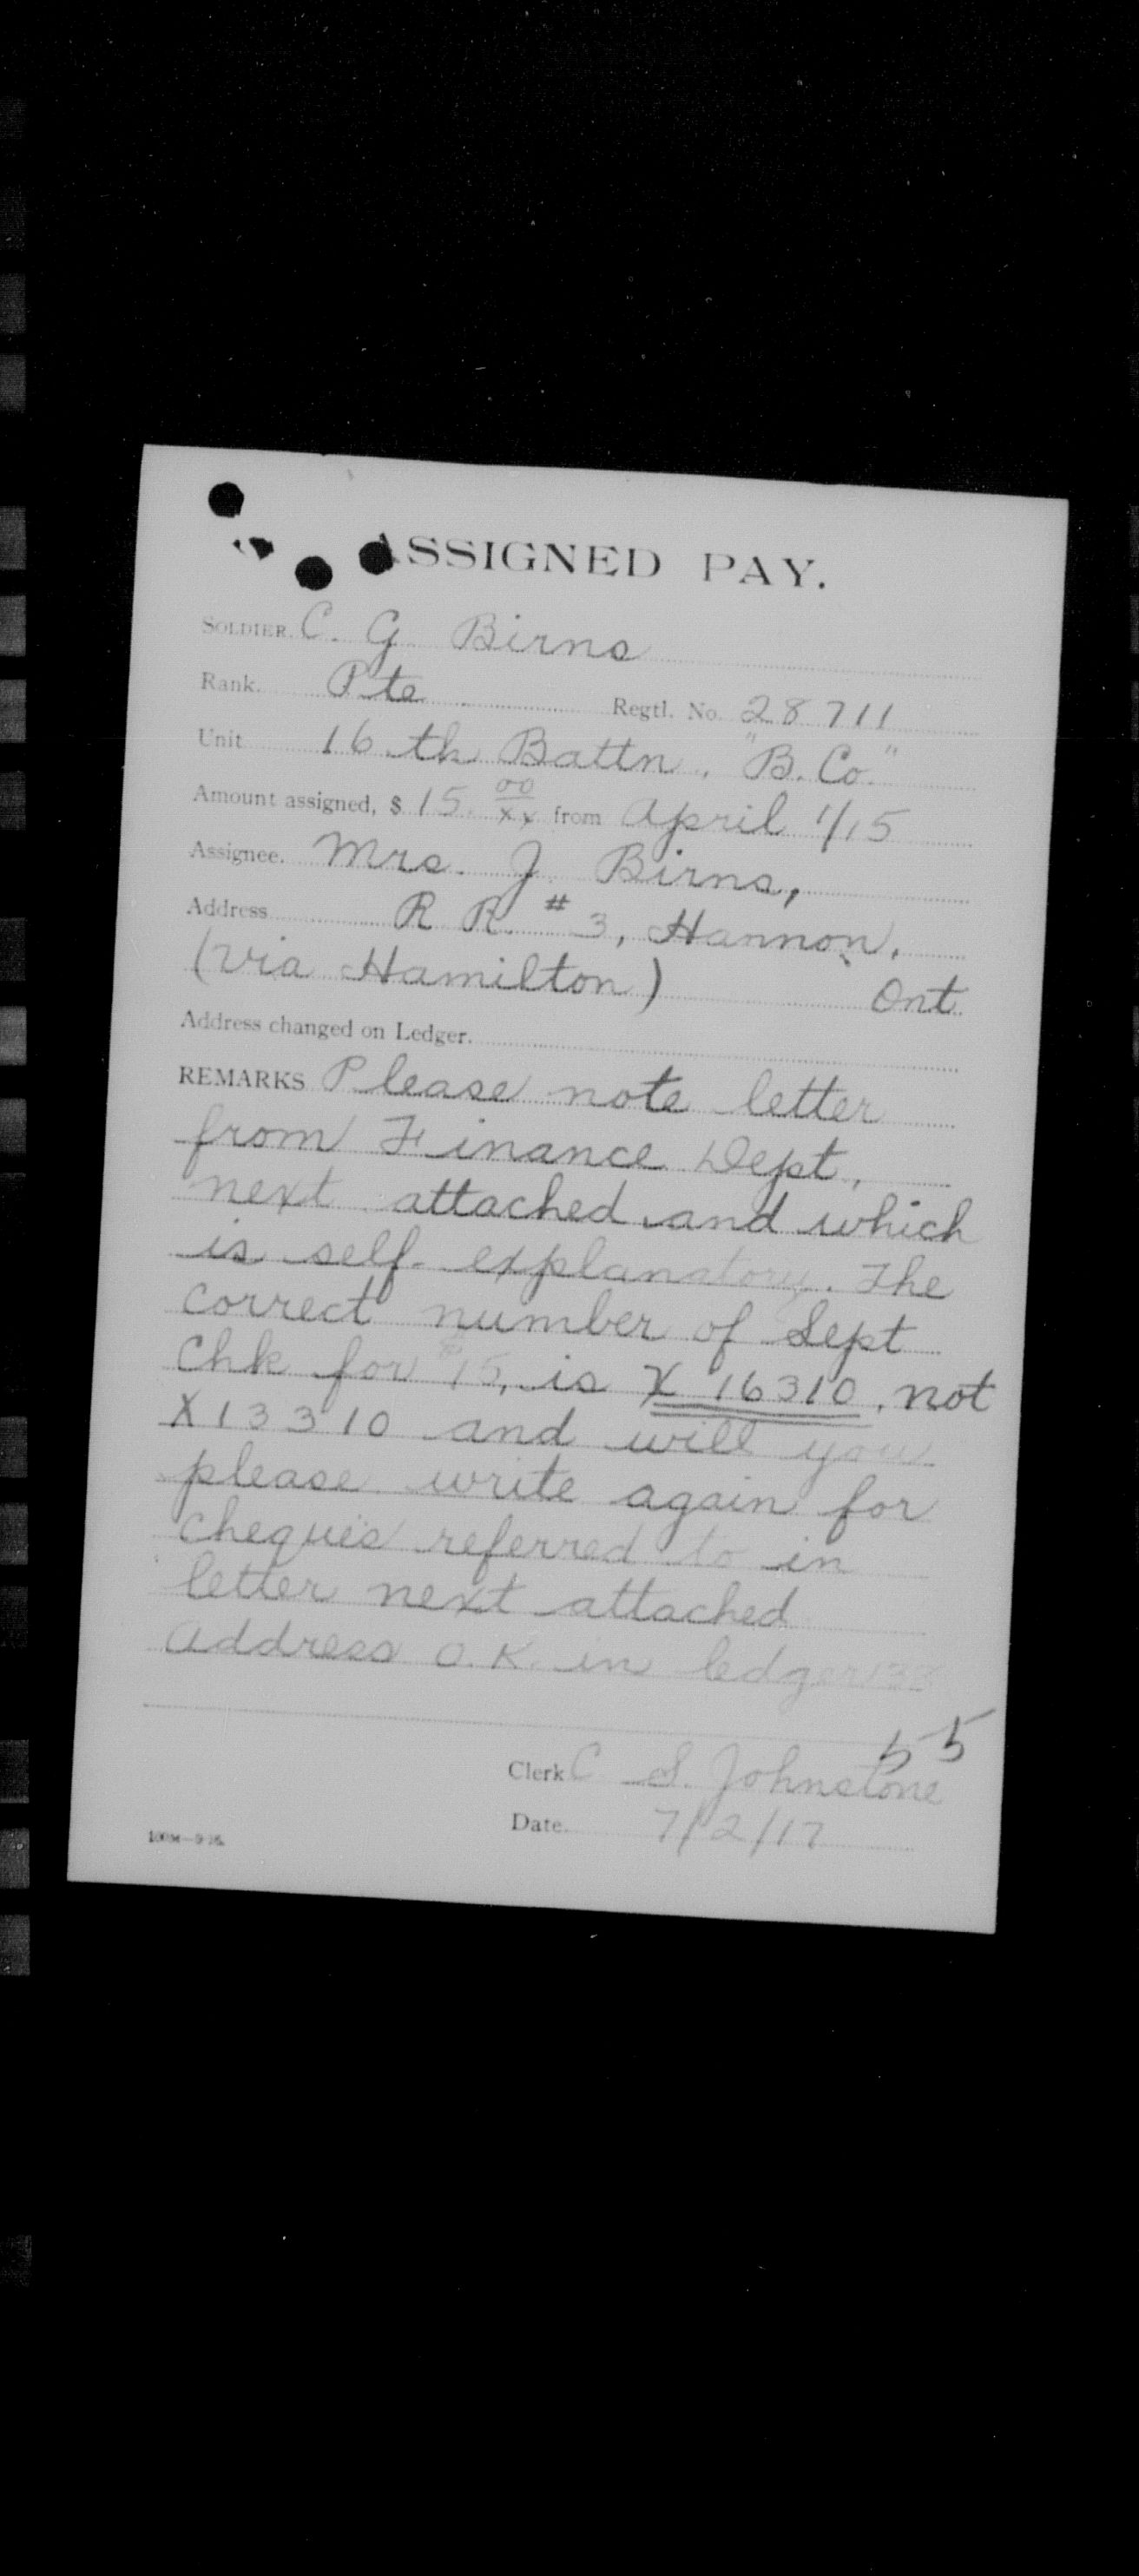 ASSIGNED PAY.
SOLDIER. C. G Birns
Rank. Pte Regtl. No. 28711
Unit 16th Battn. "B. Co."
Amount assigned, $ 15 00/xx from April 1/15
Assignee. Mrs. J Birns,
Address R R. # 3, Hannon,
(via Hamilton) Ont.
Address changed on Ledger.
REMARKS Please note letter
from Finance Dept,
next attached and which
is self-explanatory. The
correct number of Sept
Chk for $15, is X 16310, not
X13310 and will you
please write again for
cheques referred to in
letter next attached
Address O.K. in ledger
55
Clerk C S. Johnstone
Date. 7/2/17